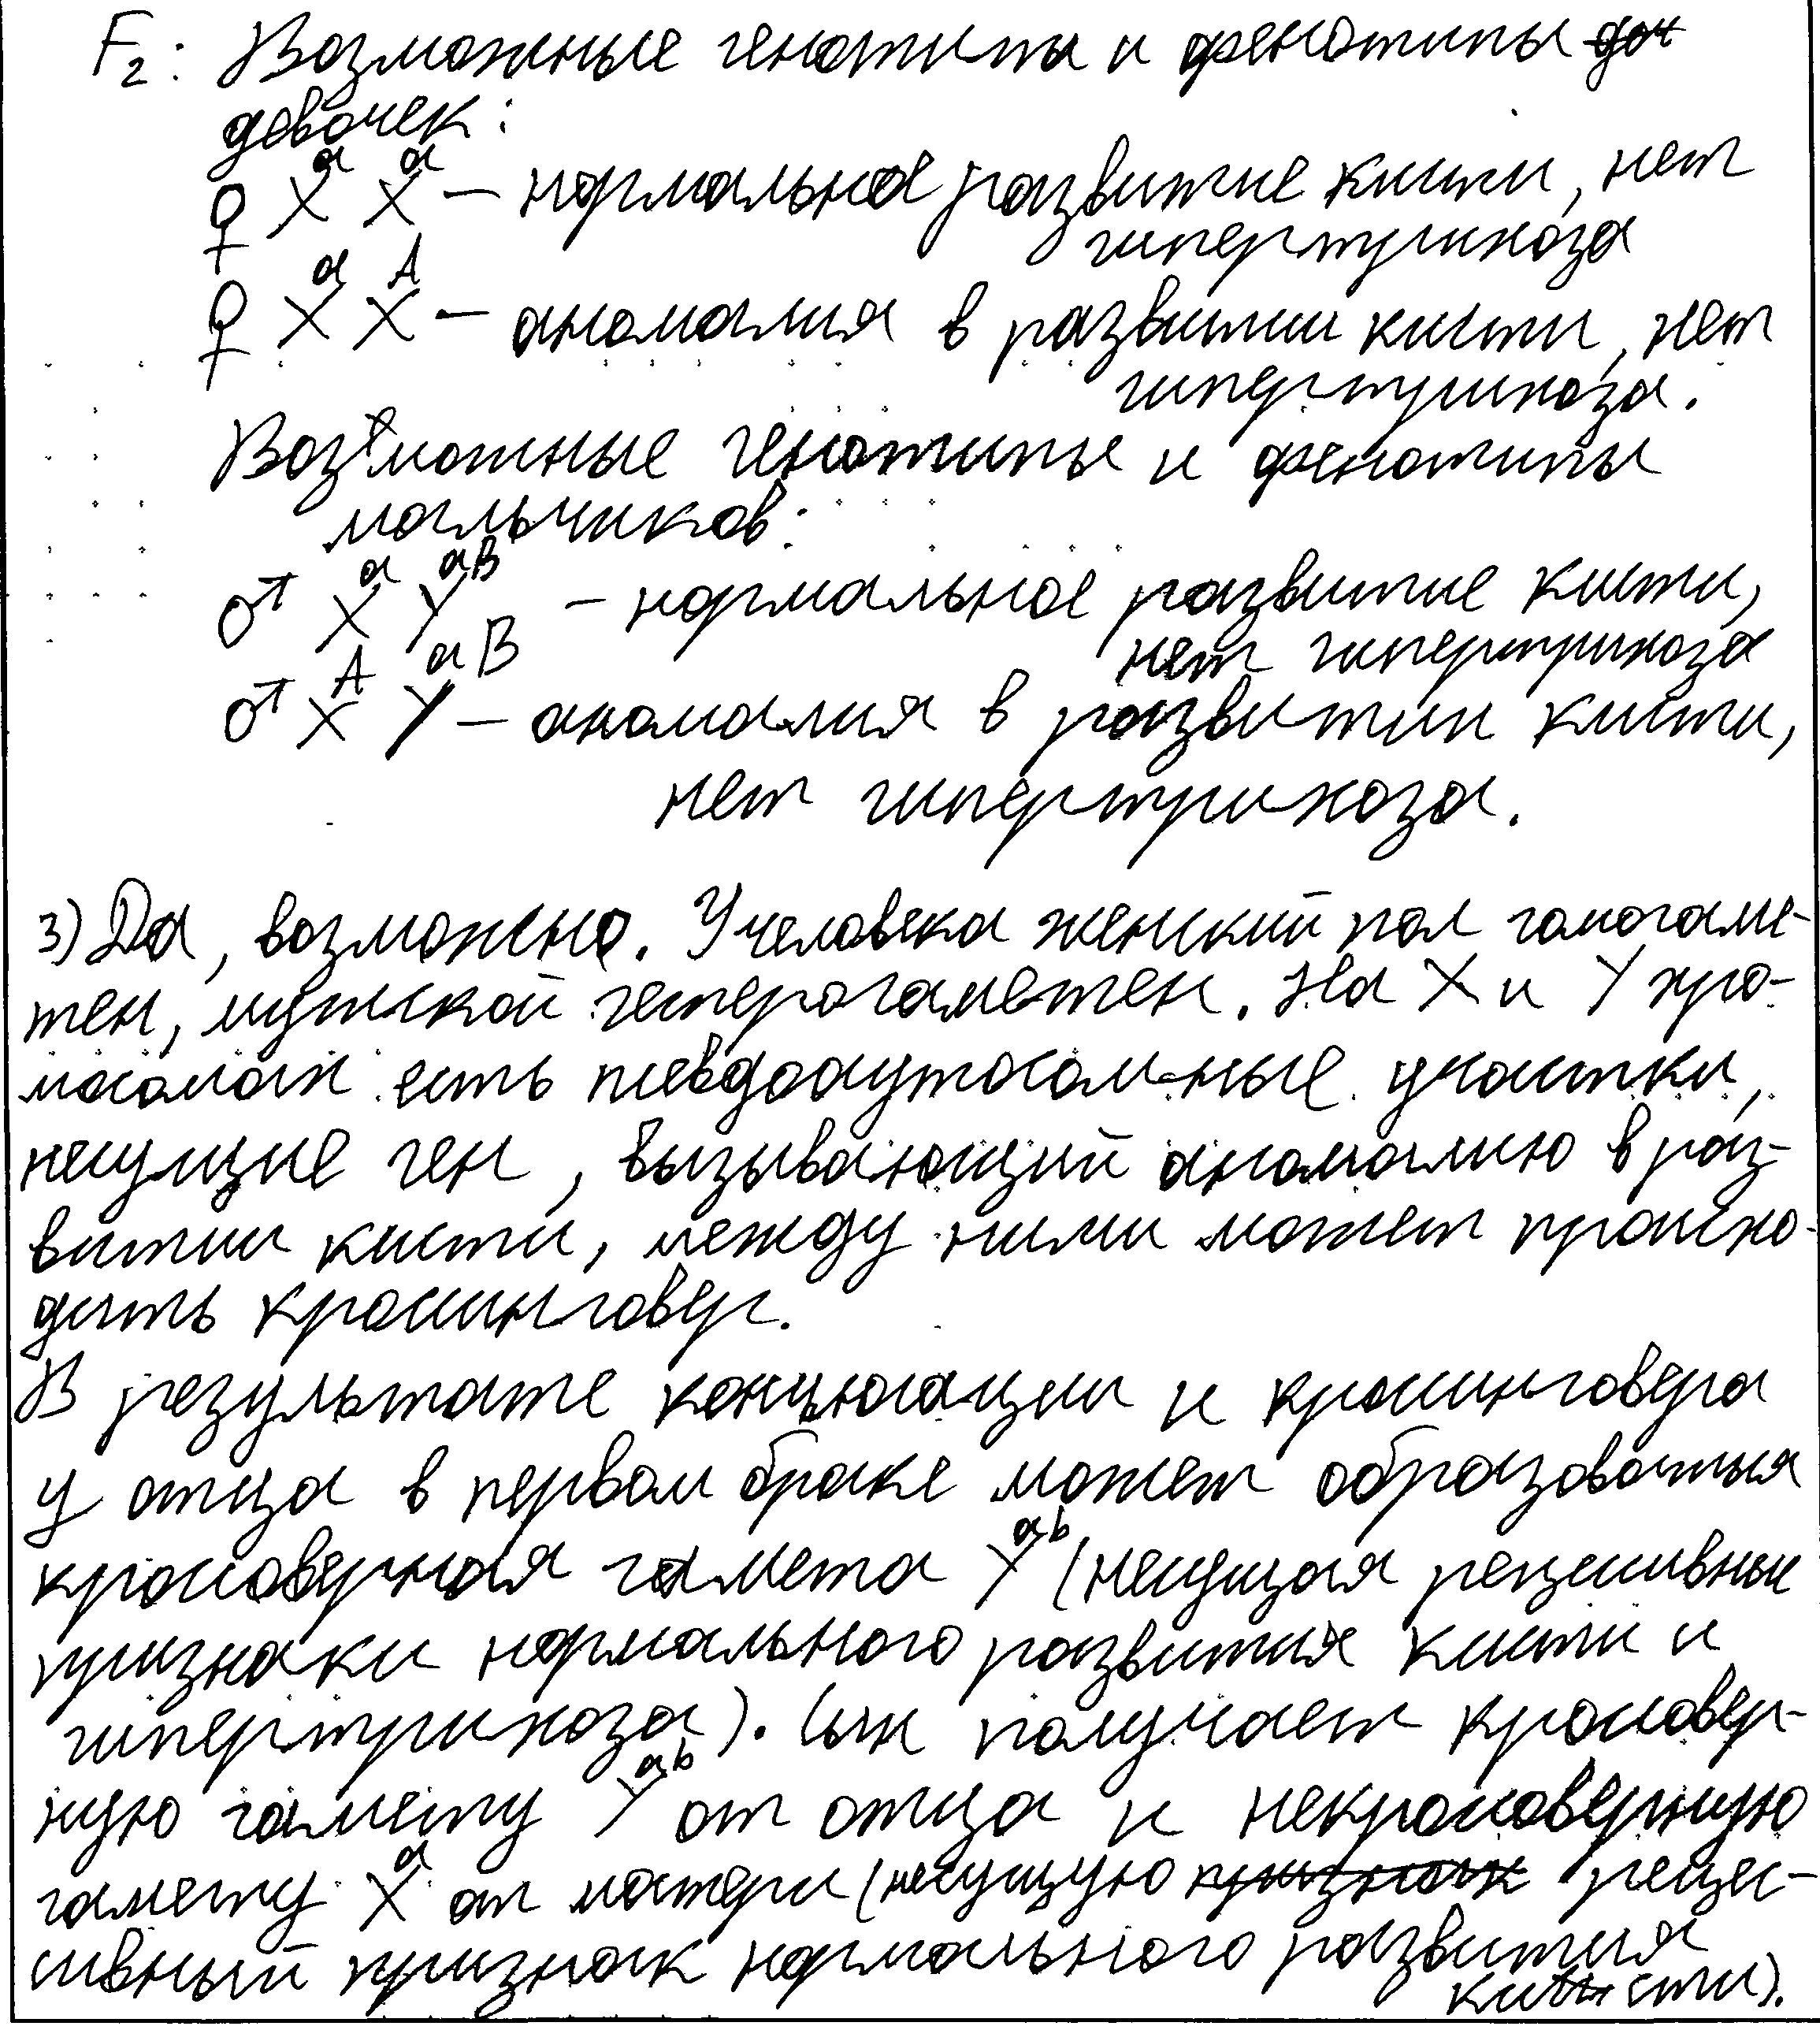 F₂: Возможные генотипы и фенотипы ~~доч~~
девочек:
♀ XᵃXᵃ – нормальное развитие кисти, нет
гипертрихоза
♀ XᵃXᴬ – аномалия в развитии кисти, нет
гипертрихоза.
Возможные генотипы и фенотипы
мальчиков:
♂ XᵃYᵃᴮ – нормальное развитие кисти,
нет гипертрихоза
♂ XᴬYᵃᴮ – аномалия в развитии кисти,
нет гипертрихоза.
3) Да, возможно. У человека женский пол гомогаме-
тен, мужской гетерогаметен. На X и Y хро-
мосомах есть псевдоаутосомные участки,
несущие ген, вызывающий аномалию в раз-
витии кисти, между ними может происхо-
дить кроссинговер.
В результате конъюгации и кроссинговера
у отца в первом браке может образоваться
кроссоверная гамета Yᵃᵇ (несущая рецессивные
признаки нормального развития кисти и
гипертрихоза). Сын получает кроссовер-
ную гамету Yᵃᵇ от отца и некроссоверную
гамету Xᵃ от матери (несущую ~~признак~~ рецес-
сивный признак нормального развития
кисти).